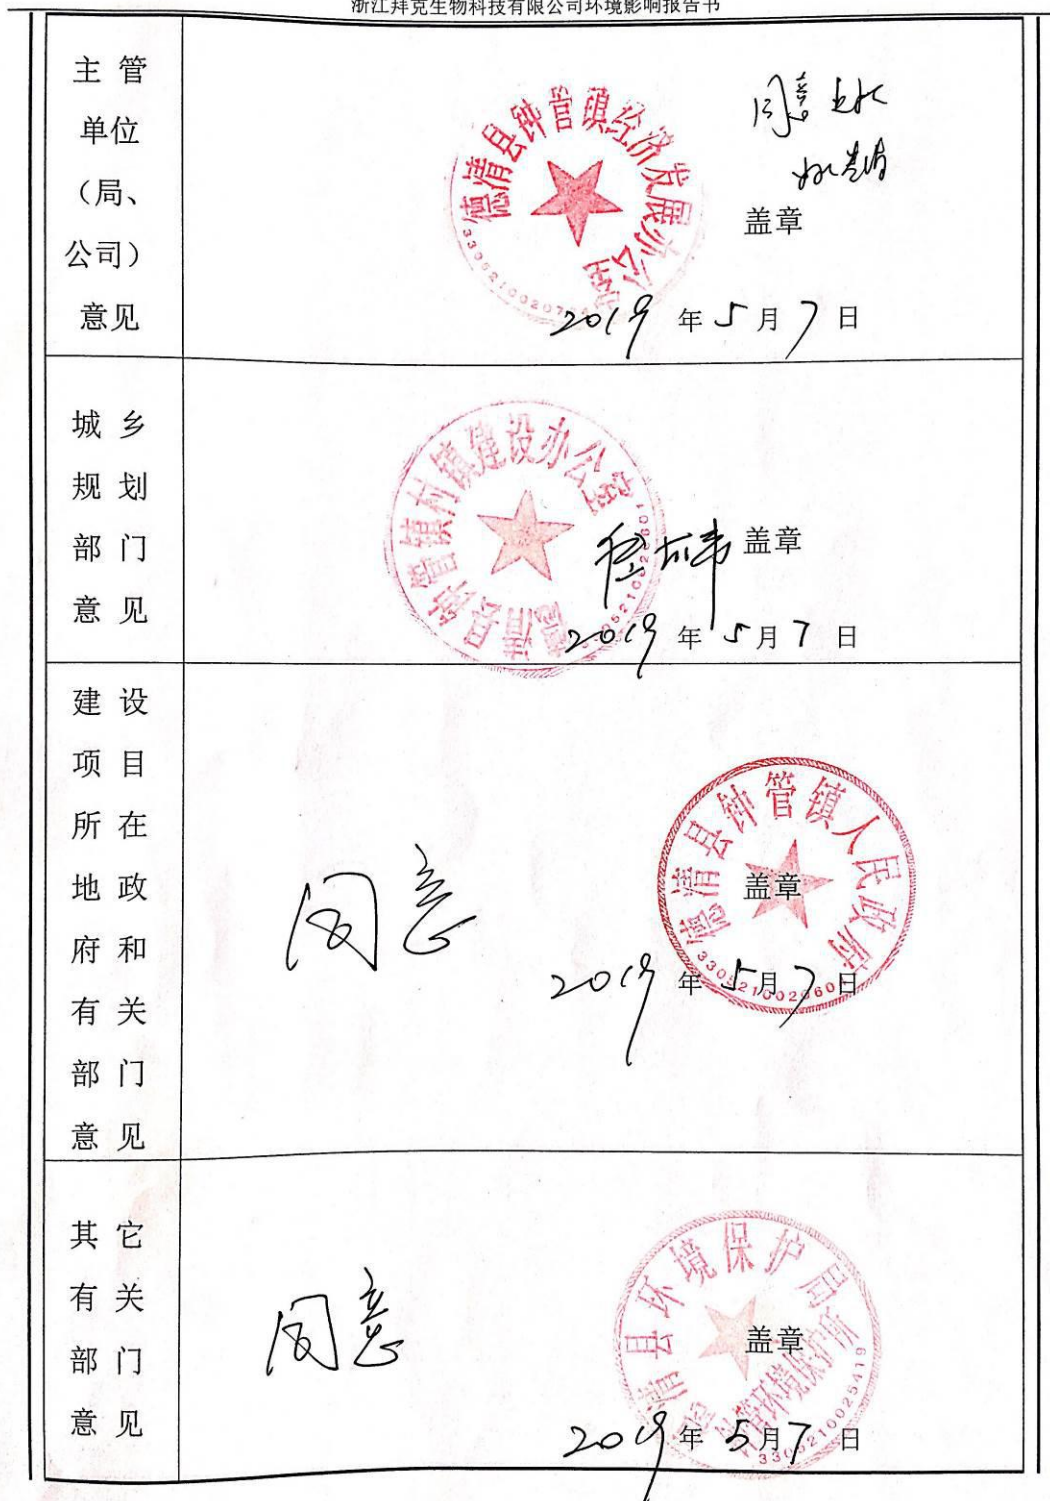 浙江拜克生物科技有限公司环境影响报告书
主管
单位
（局、
公司）
意见
德清县钟管镇经济发展办公室
同意上报
盖章
2019年5月7日
城乡
规划
部门
意见
德清县钟管镇村镇建设办公室
盖章
2019年5月7日
建设
项目
所在
地政
府和
有关
部门
意见
同意
德清县钟管镇人民政府
盖章
2019年5月7日
其它
有关
部门
意见
同意
德清县环境保护局
钟管环境保护所
盖章
2019年5月7日
3305210025419